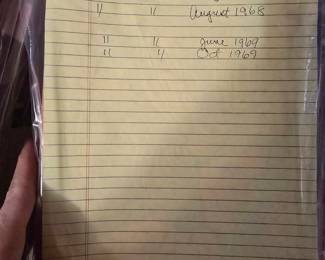 " " August 1968
" " June 1969
" " Oct 1969